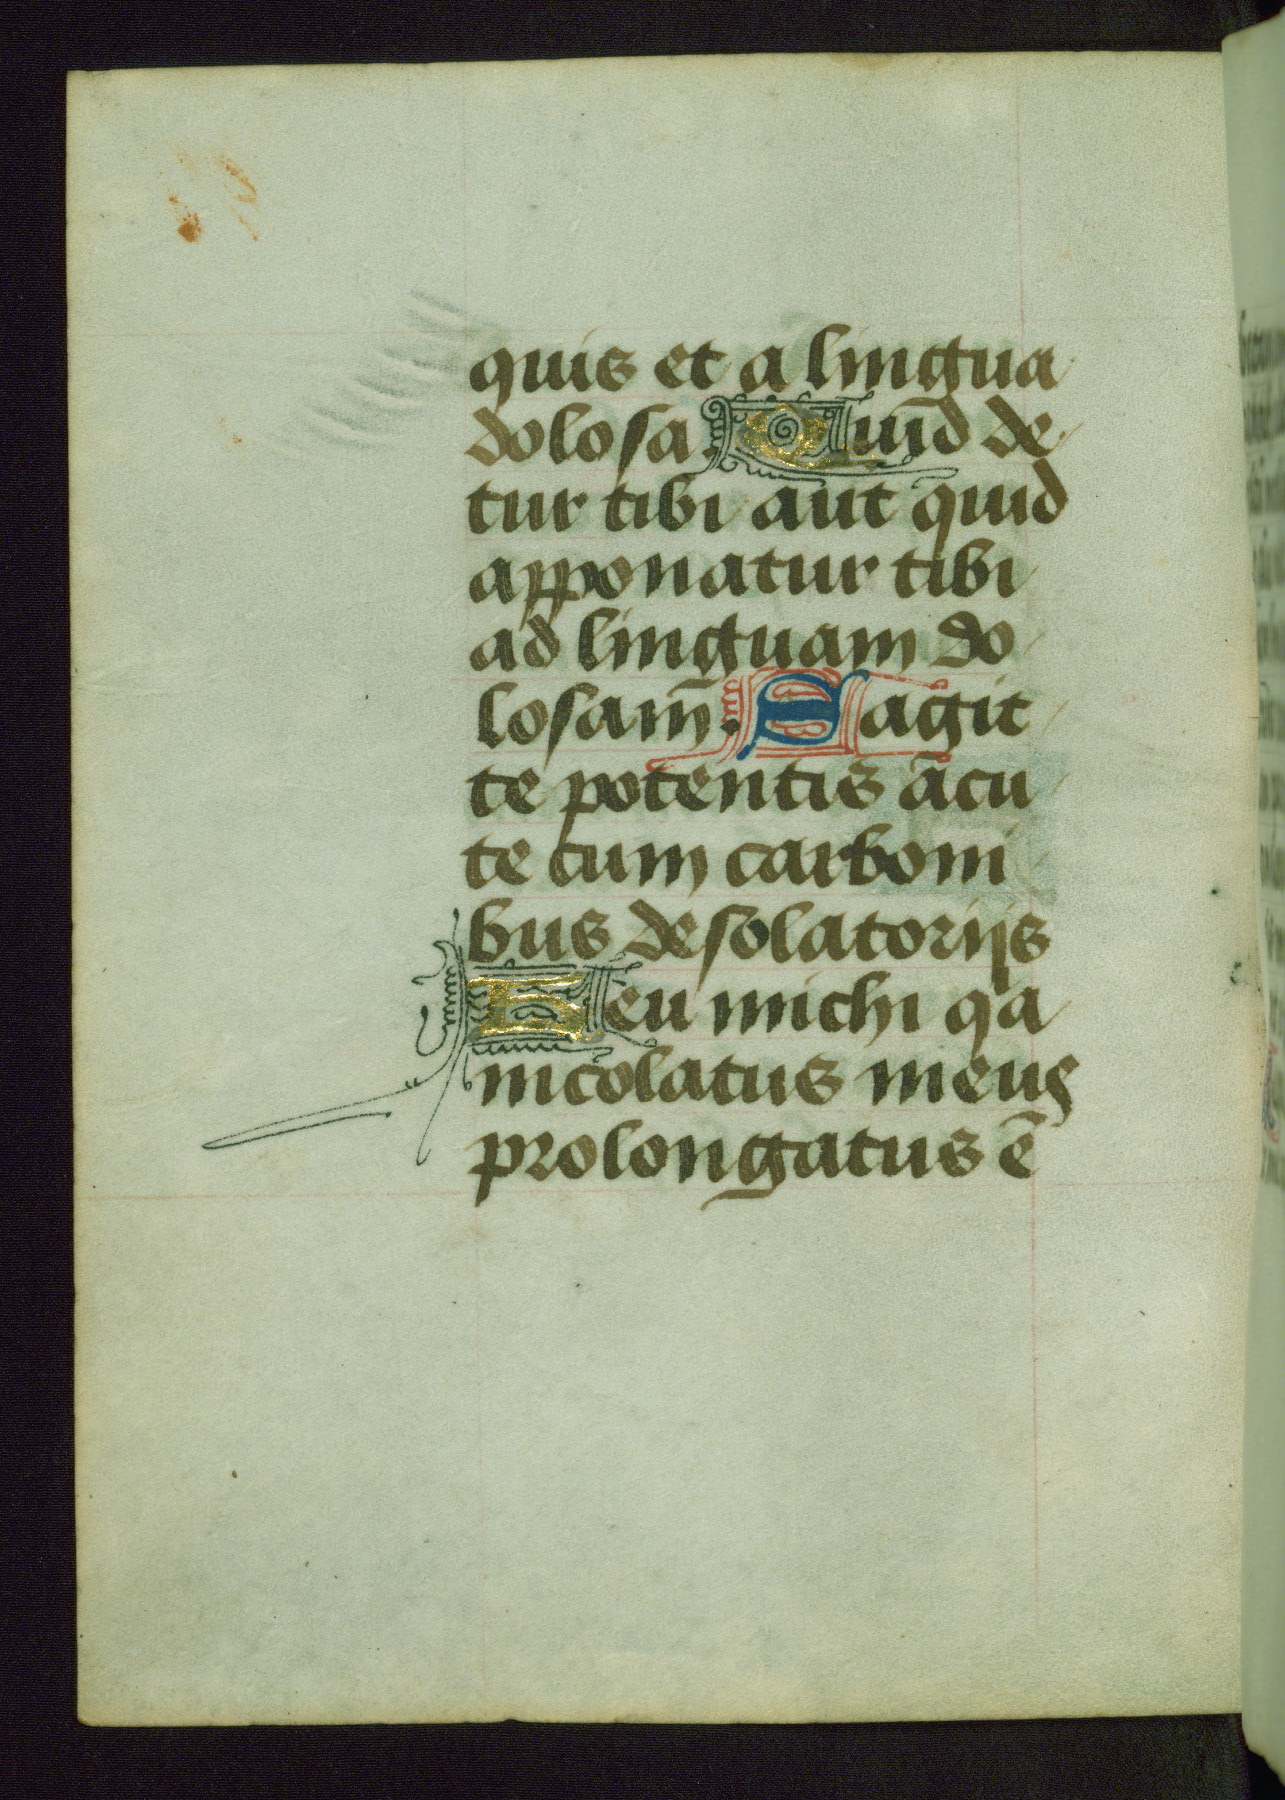 quis et a lingua
dolosa. Quid de
tur tibi aut quid
apponatur tibi
ad linguam do
losam̄. Sagit
te potentis acu
te cum carboni
bus desolatorijs
Heu michi qa
incolatus meus
prolongatus ē